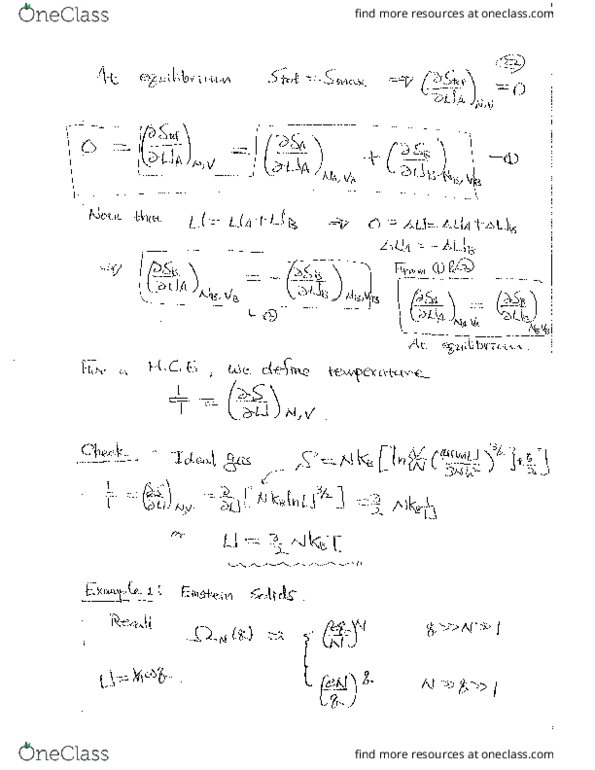 OneClass
find more resources at oneclass.com
At equilibrium Stot = Smax ⇒ (∂Stot/∂UA)N,V = 0
0 = (∂Stot/∂UA)N,V = (∂SA/∂UA)NA,VA + (∂SB/∂UA)NB,VB —①
Note that U = UA + UB ⇒ 0 = ΔU = ΔUA + ΔUB
ΔUA = -ΔUB
⇒ (∂SB/∂UA)NB,VB = -(∂SB/∂UB)NB,VB
②
From ① & ②
(∂SA/∂UA)NA,VA = (∂SB/∂UB)NB,VB
At equilibrium.
For a M.C.E, we define temperature
1/T = (∂S/∂U)N,V.
Check. Ideal gas S = NkB[ln{V/N (4πmU/3Nh²)^3/2} + 5/2]
1/T = (∂S/∂U)N,V = ∂/∂U[NkB ln U^3/2] = 3/2 NkB 1/U
U = 3/2 NkBT
Example 1: Einstein Solids.
Recall ΩN(q) ≈ { (eq/N)^N q >> N >> 1
U = ħωq (eN/q)^q N >> q >> 1
OneClass
find more resources at oneclass.com